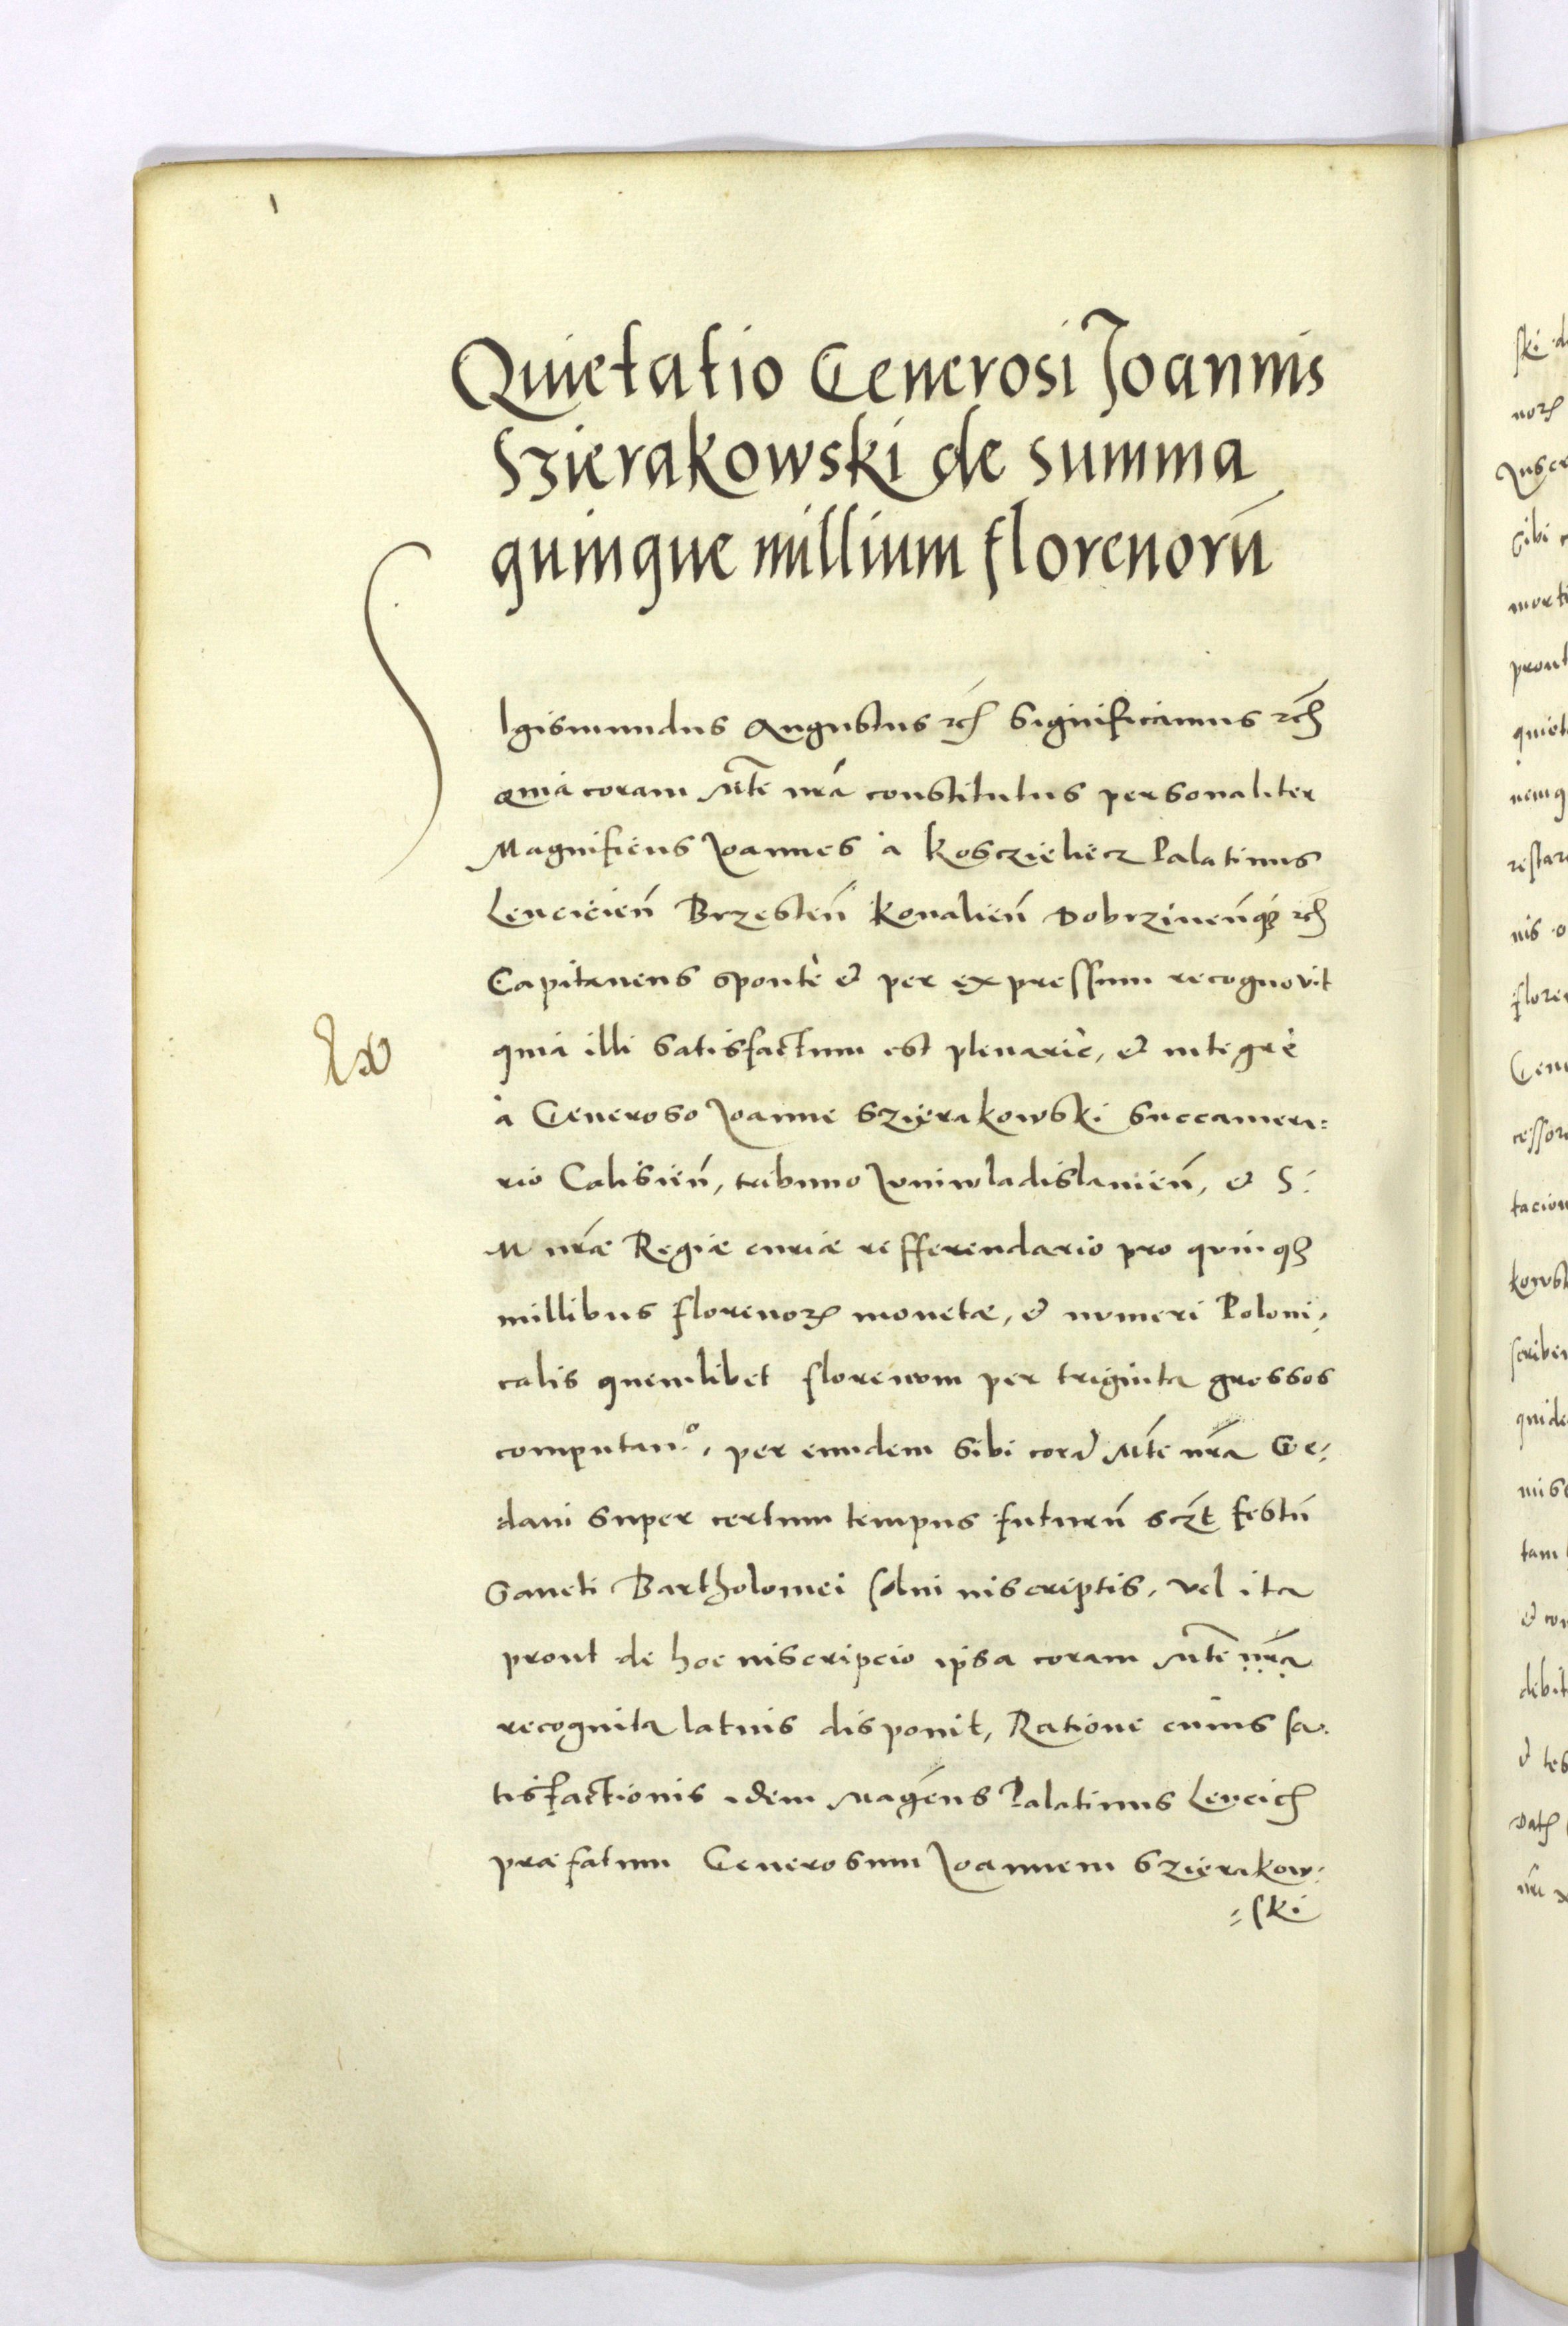 Quietatio Generosi Joannis
Szierakowski de summa
quinque millium florenorū
SIgismundus Augustus etc̄ Significamus etc̄
Quia coram Mt̄e nrā constitutus personaliter
Magnificus Joannes à Kosczieliecz Palatinus
Lenciciēn Brzestēn Kovaliēn Dobrzinēnq3 etc̄
Capitaneus sponte et per expressum recognovit
quia illi satisfactum est plenarie, et integrè
à Generoso Joanne Szierakowski Succamera:
rio Calisiēn, tribuno Juniwladislaviēn, et S.
M nrāe Regiae curiae refferendario pro quinq3
millibus florenor̄ monetae, et numeri Poloni,
calis quemlibet florenum per triginta grossos
computanº, per eundem sibi corā Mt̄e nrā Ge,
dani super certum tempus futurū sczt̄ festū
Sancti Bartholomei solvi inscriptis, vel ita
prout de hoc inscripcio ipsa coram Mt̄e nrā
recognita latius disponit, Ratione cuius sa,
tisfactionis idem Magcūs Palatinus Lencic̄
praefatum Generosum Joannem Szierakow,
=ski
ski
nor̄
Inscr
sibi
morti
prout
nis
Gen
tacion
tam